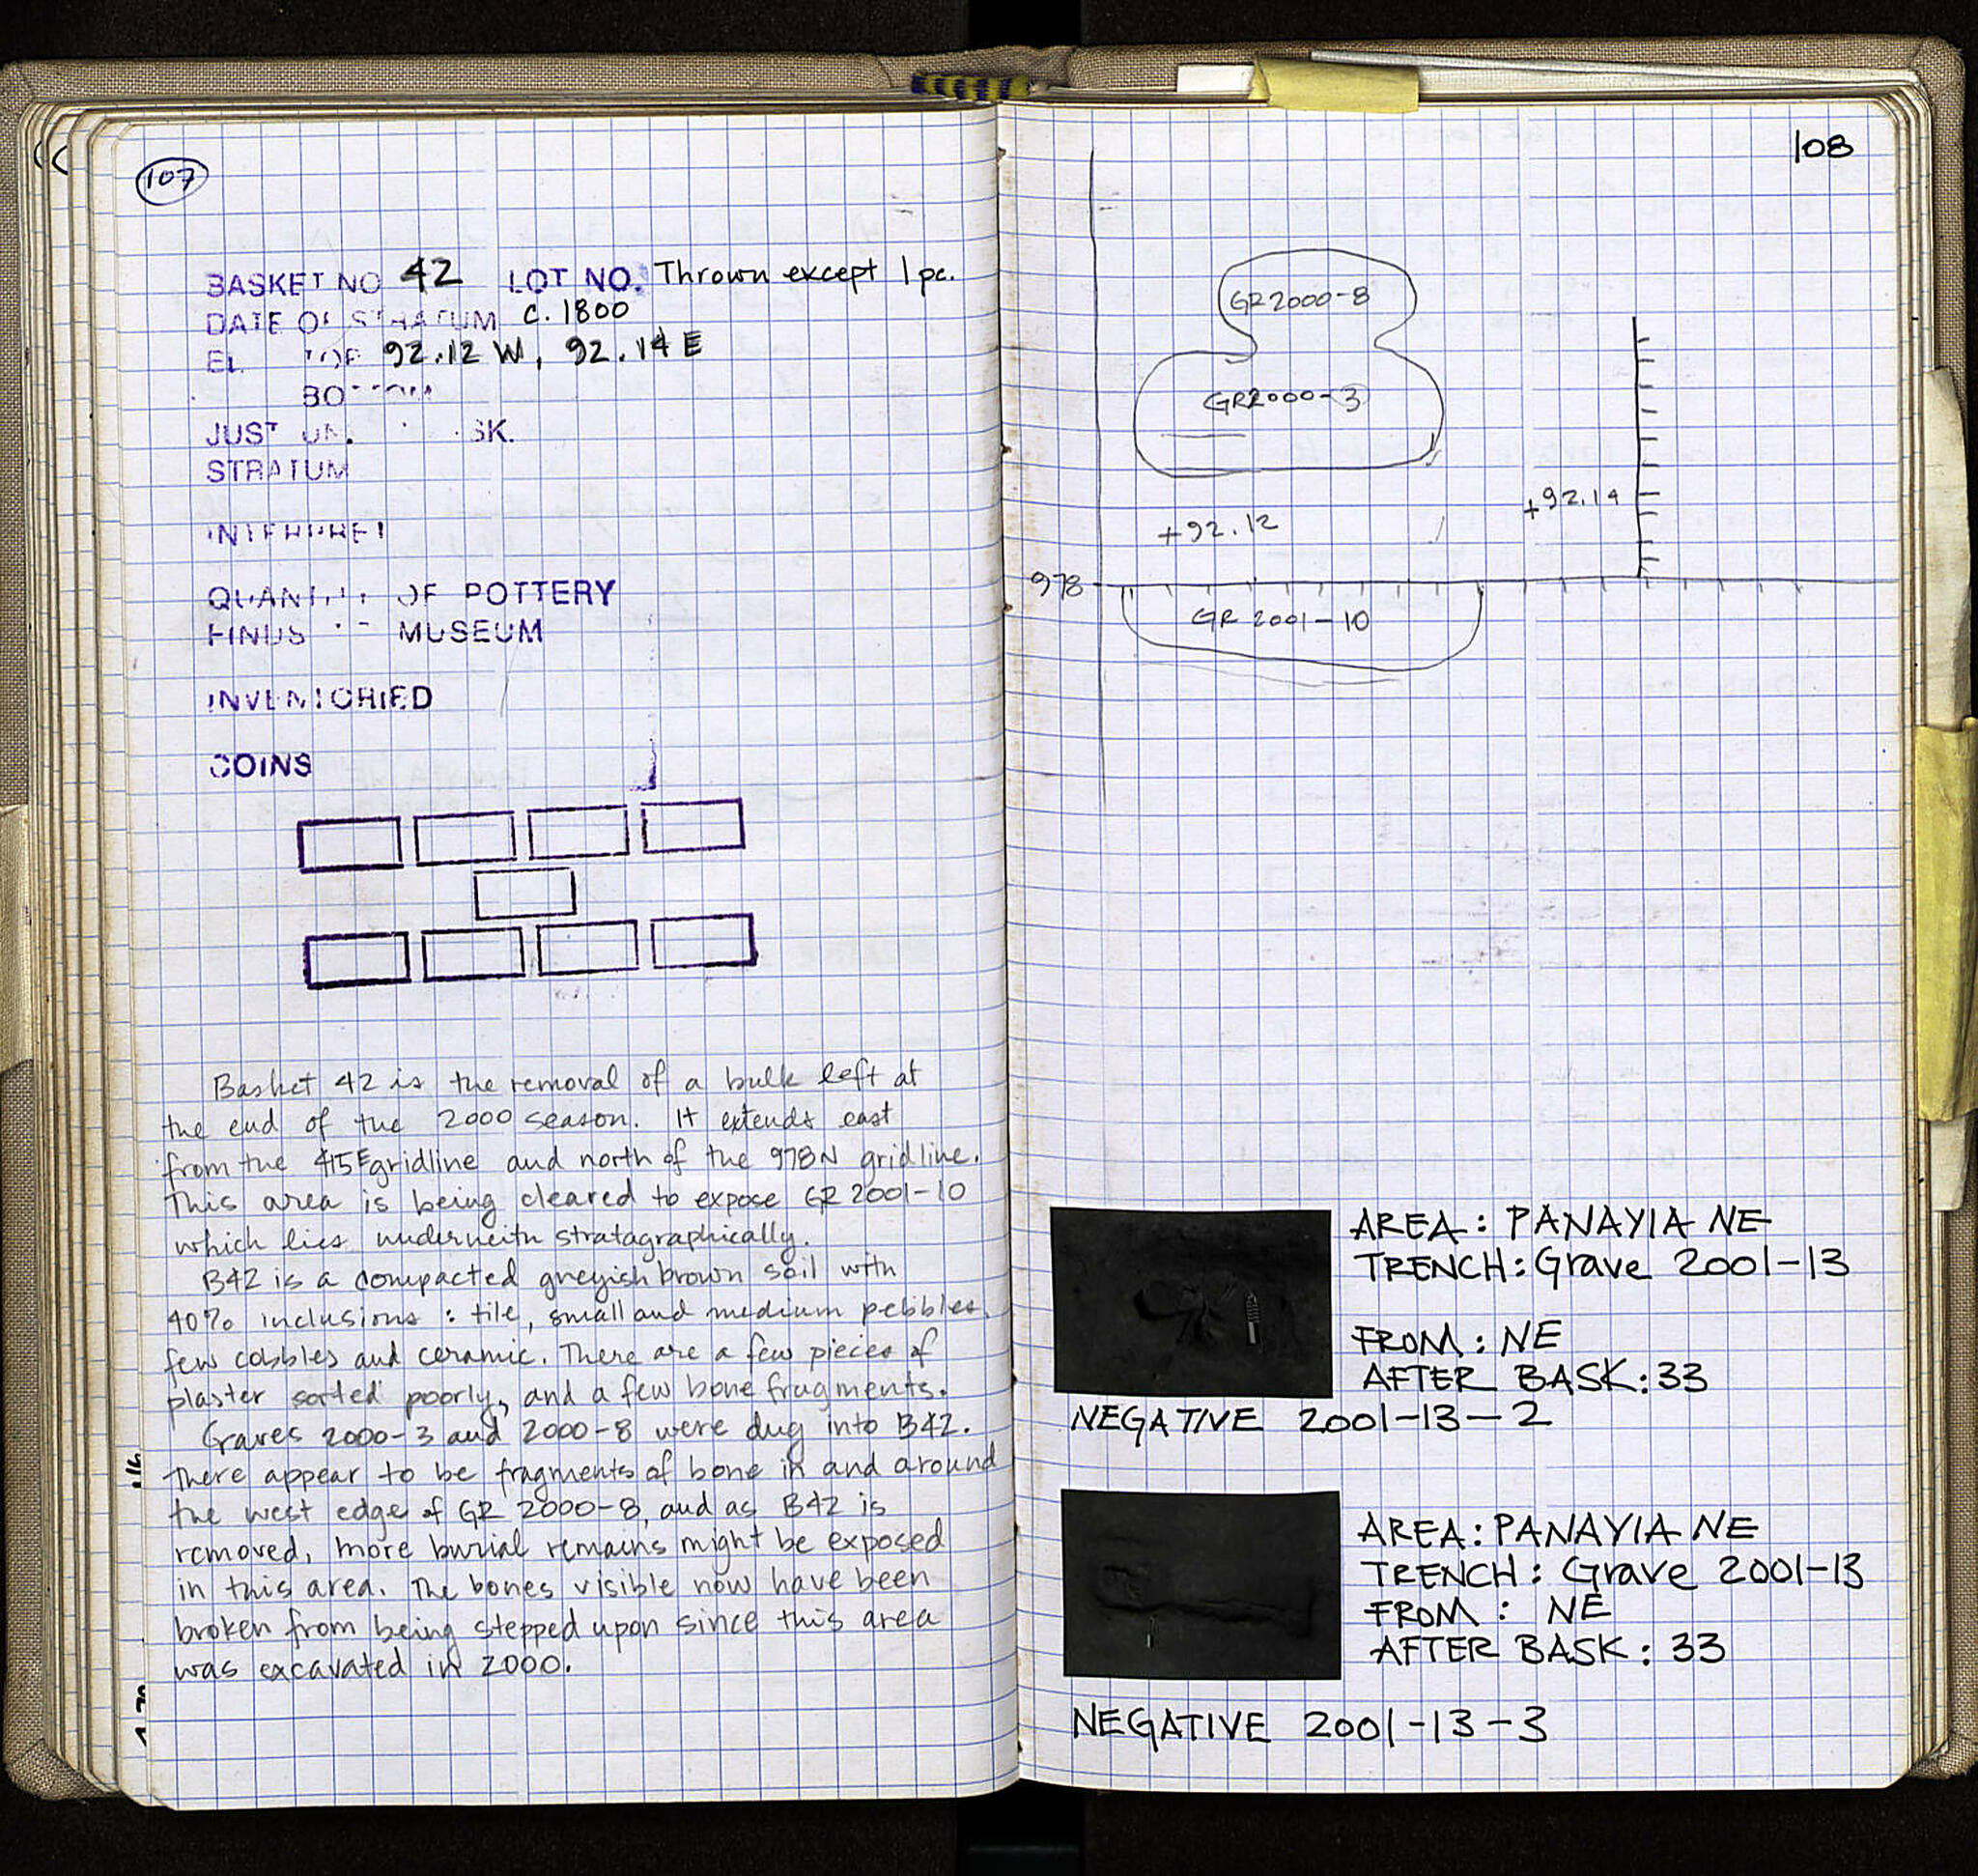 107
BASKET NO 42 LOT NO. Thrown except 1 pc.
DATE OF STRATUM c. 1800
EL. TOP 92.12 W, 92.14 E
BOTTOM
JUST UN. SK.
STRATUM
INTERPRET
QUANTITY OF POTTERY
FINDS MUSEUM
INVENTORIED
COINS
Basket 42 is the removal of a bulk left at
the end of the 2000 season. It extends east
from the 415E gridline and north of the 978N gridline.
This area is being cleared to expose GR 2001-10
which lies underneith stratagraphically.
B42 is a compacted greyish brown soil with
40% inclusions : tile, small and medium pebbles,
few cobbles and ceramic. There are a few pieces of
plaster sorted poorly, and a few bone fragments.
Graves 2000-3 and 2000-8 were dug into B42.
There appear to be fragments of bone in and around
the west edge of GR 2000-8, and as B42 is
removed, more burial remains might be exposed
in this area. The bones visible now have been
broken from being stepped upon since this area
was excavated in 2000.
108
GR 2000-8
GR2000-3
+92.14
+92.12
978
GR 2001-10
AREA: PANAYIA NE
TRENCH: Grave 2001-13
FROM: NE
AFTER BASK: 33
NEGATIVE 2001-13-2
AREA: PANAYIA NE
TRENCH: Grave 2001-13
FROM: NE
AFTER BASK: 33
NEGATIVE 2001-13-3